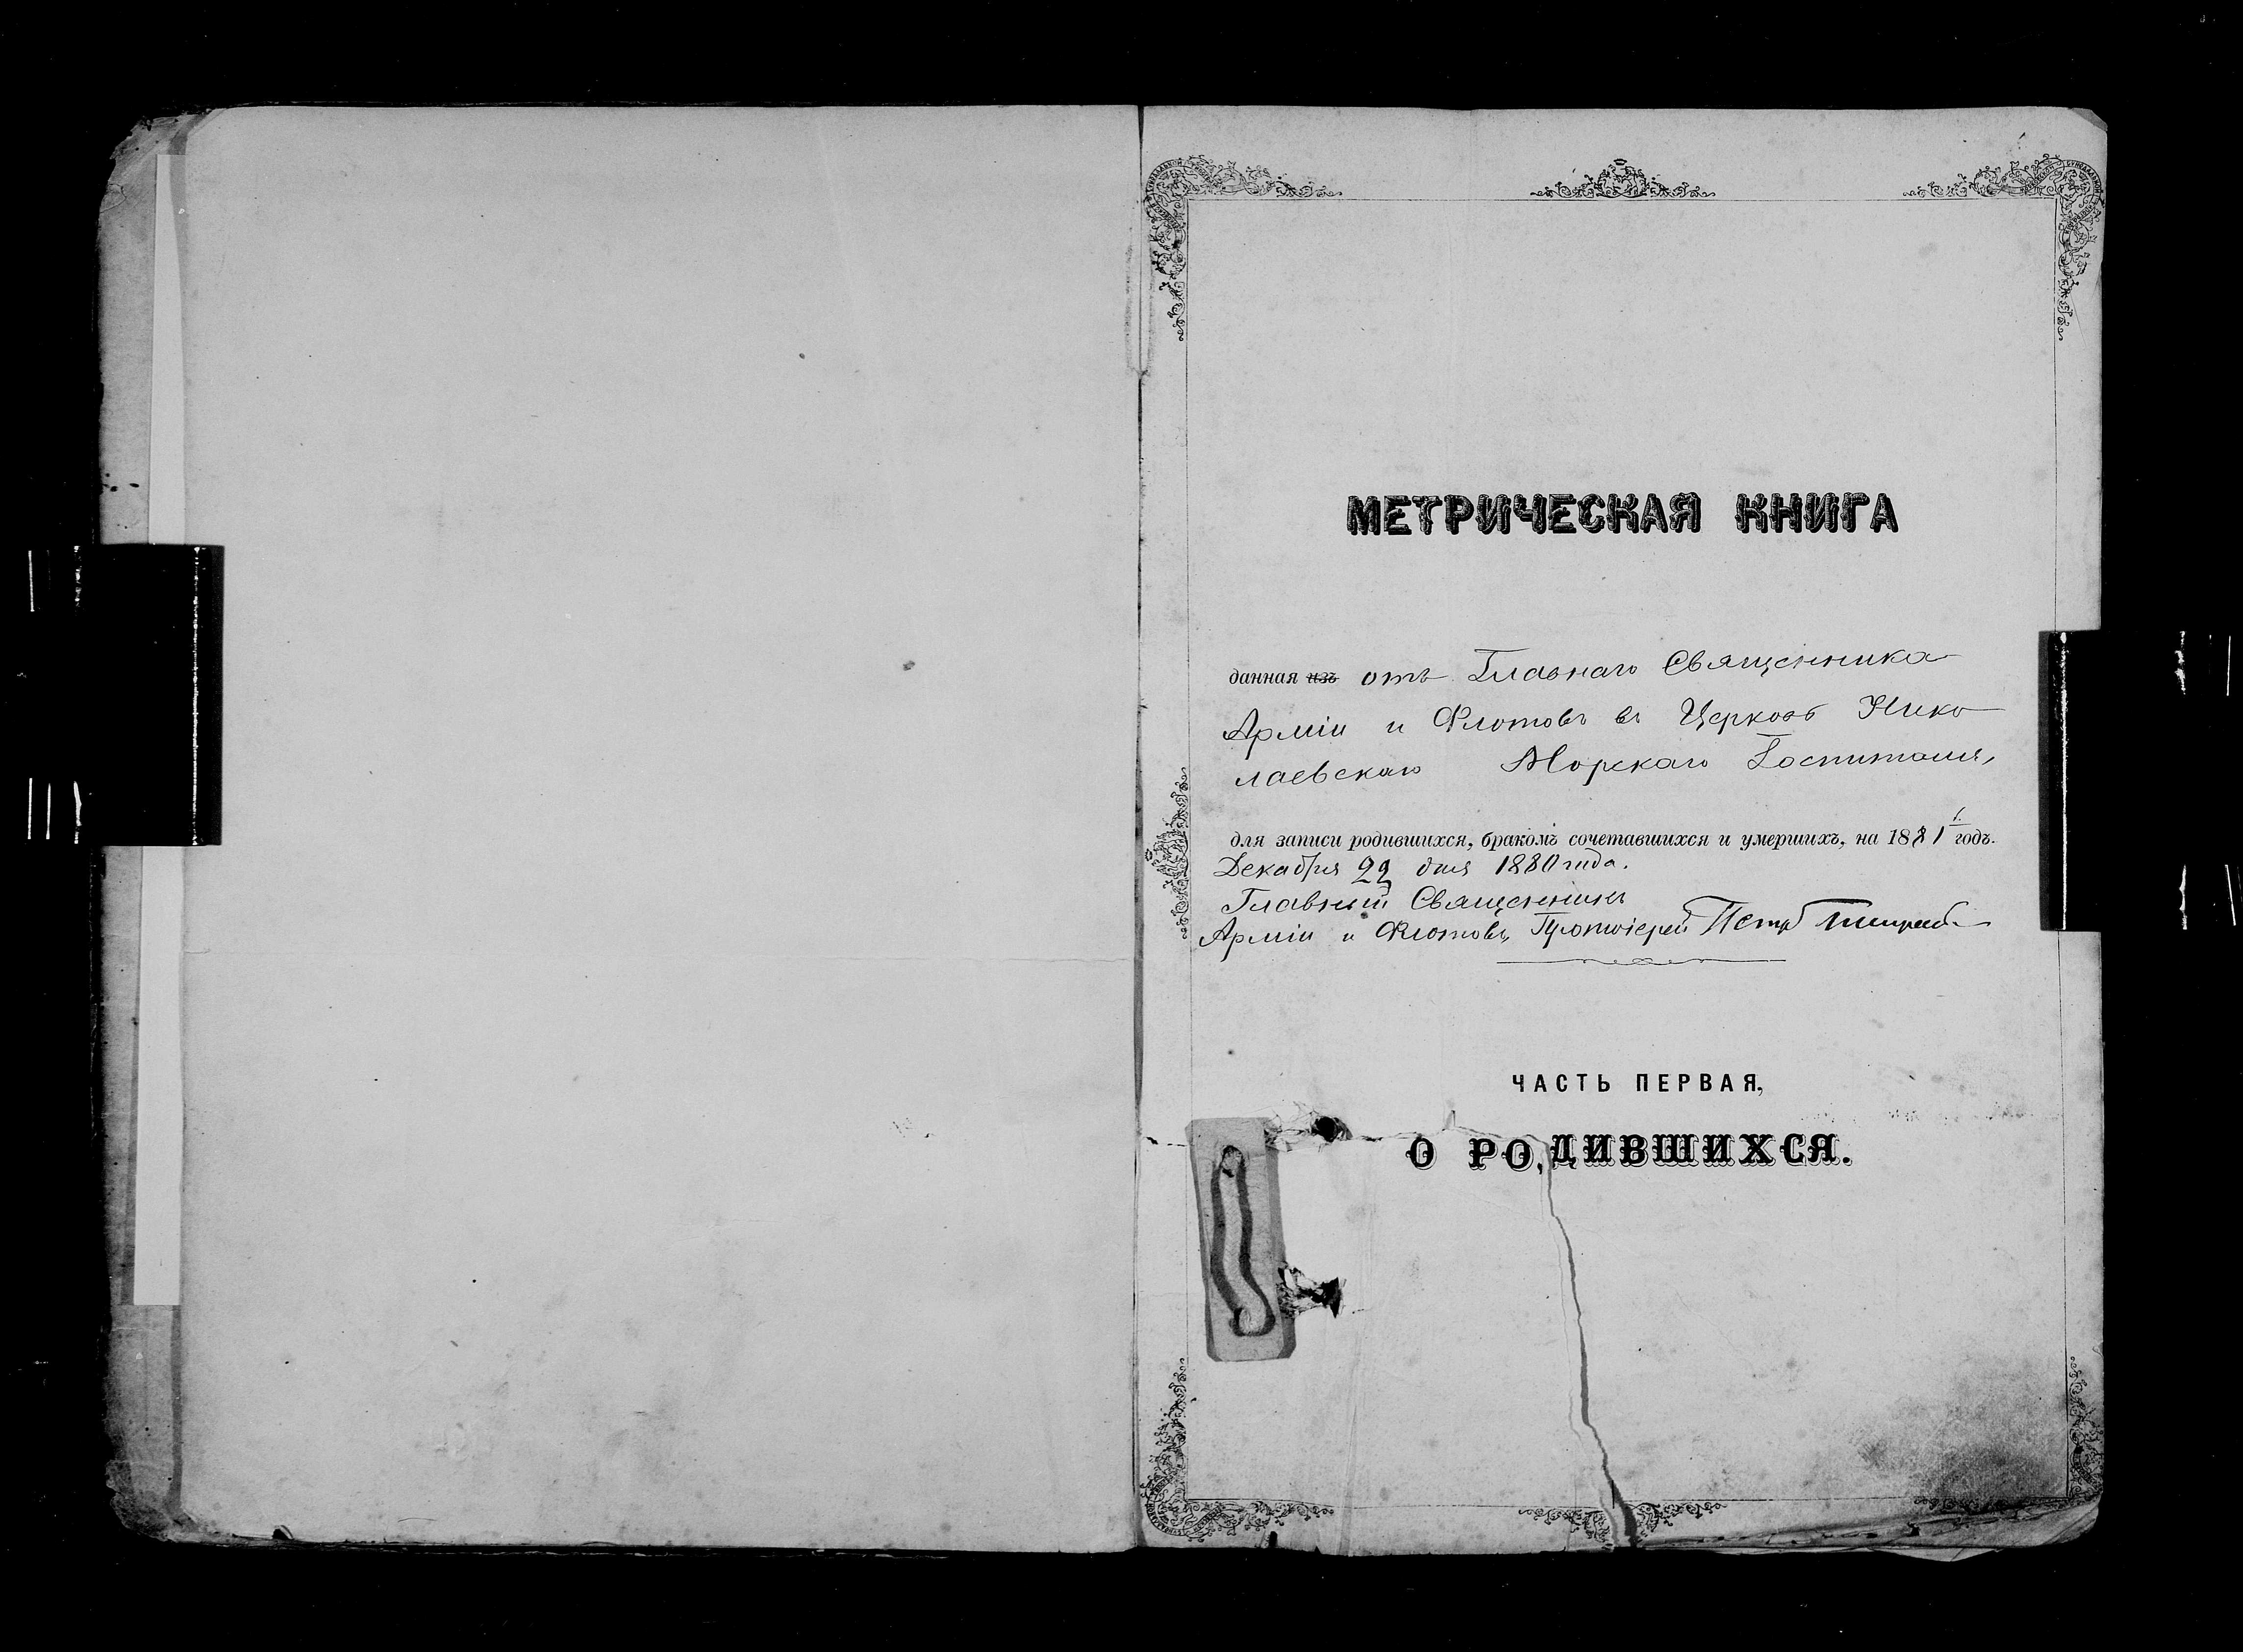 МЕТРИЧЕСКАЯ КНИГА
данная изъ отъ Главнаго Священника
Арміи и Флотовъ въ Церковь Нико
лаевскаго Морскаго Госпиталя,
для записи родившихся, бракомъ сочетавшихся и умершихъ, на 1881 годъ.
Декабря 22 дня 1880 года.
Главный Священникъ
Арміи и Флотовъ, Протоіерей Петръ
ЧАСТЬ ПЕРВАЯ,
О РОДИВШИХСЯ.